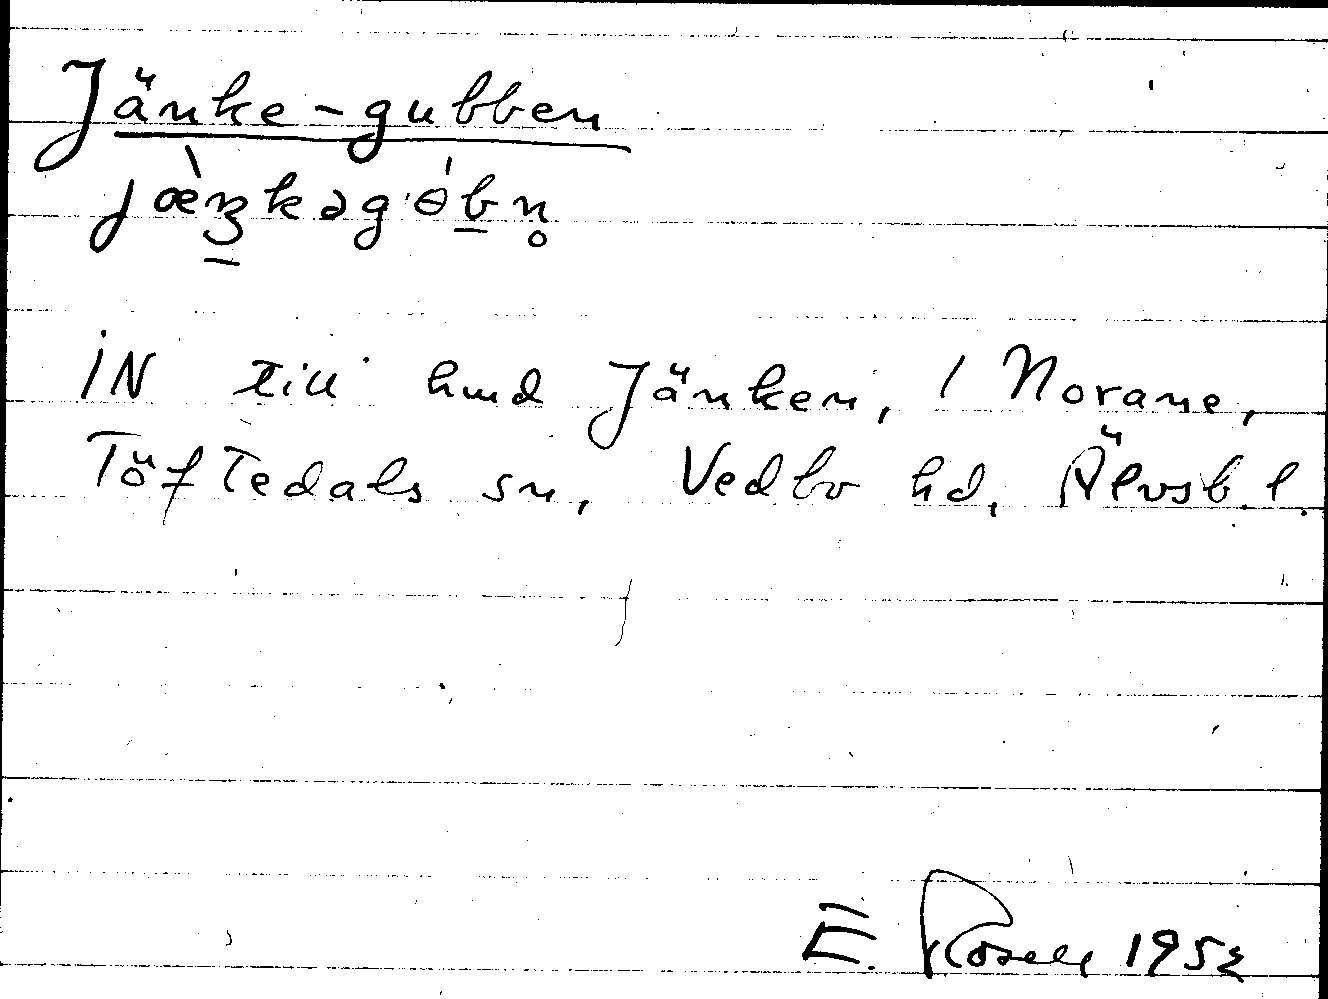 Jänke-gubben
jæ̀ŋkəgɵ́bn̥
IN till hmd Jänken, / Norane,
Töftedals sn, Vedbo hd, Älvsb. l.
E. Rosell 1952